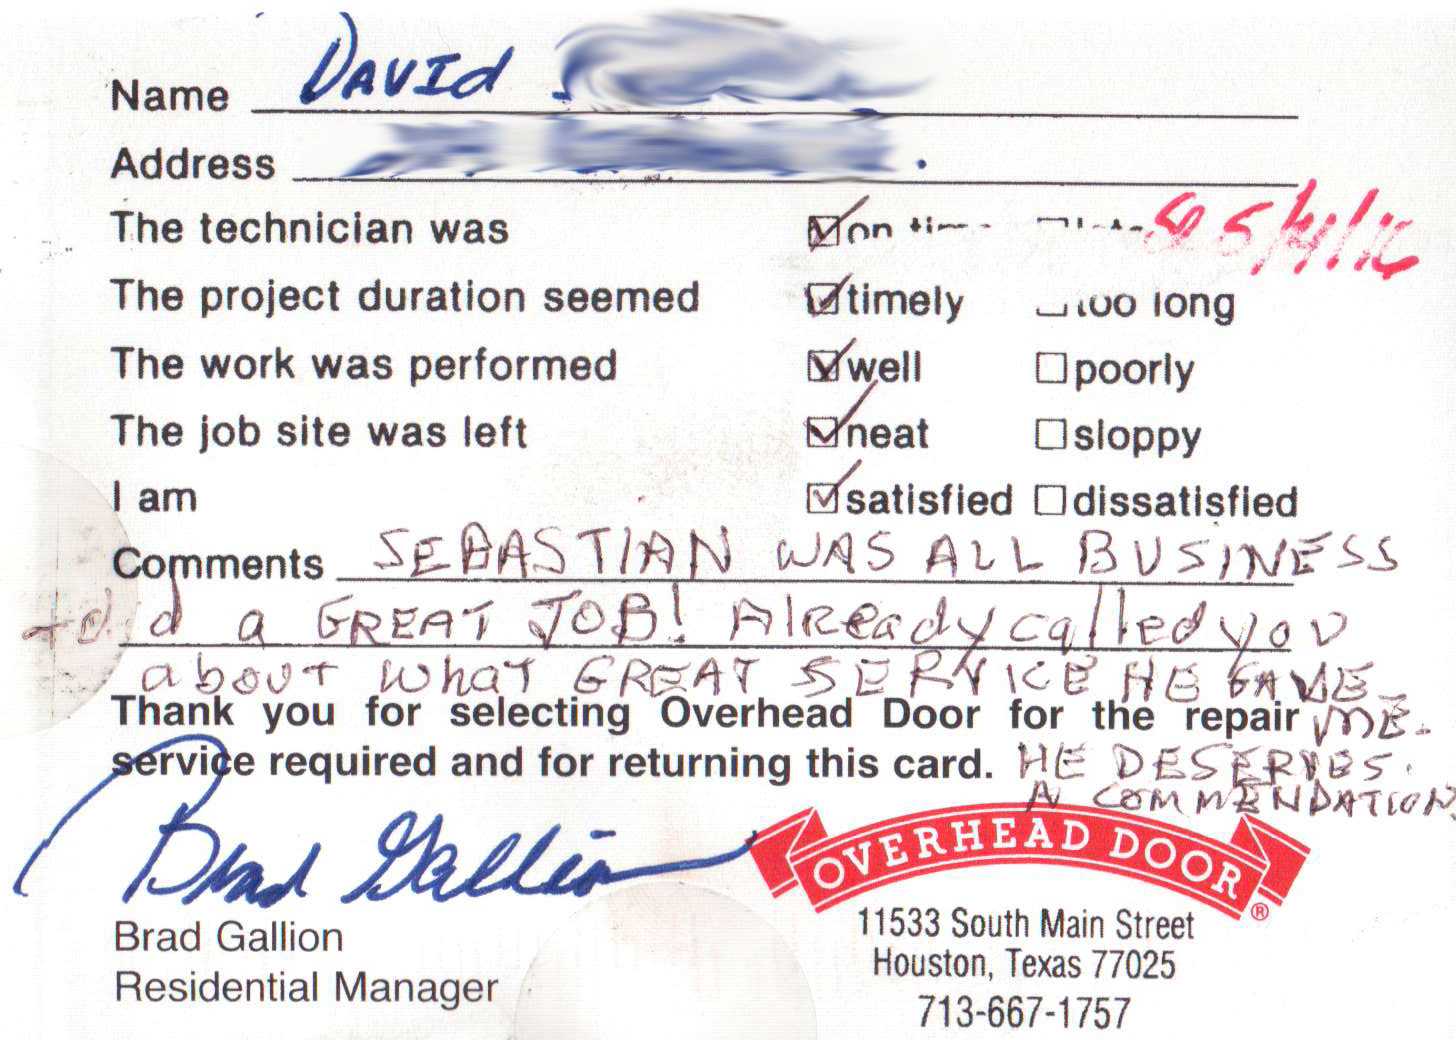 Name DAVID
Address
The technician was on time
The project duration seemed timely too long
The work was performed well poorly
The job site was left neat sloppy
I am satisfied dissatisfied
Comments SEBASTIAN WAS ALL BUSINESS
+ did a GREAT JOB! Already called you
about what GREAT SERVICE HE GAVE
Thank you for selecting Overhead Door for the repair ME.
service required and for returning this card. HE DESERVES
A COMMENDATION
Brad Gallion
OVERHEAD DOOR®
Brad Gallion
Residential Manager
11533 South Main Street
Houston, Texas 77025
713-667-1757